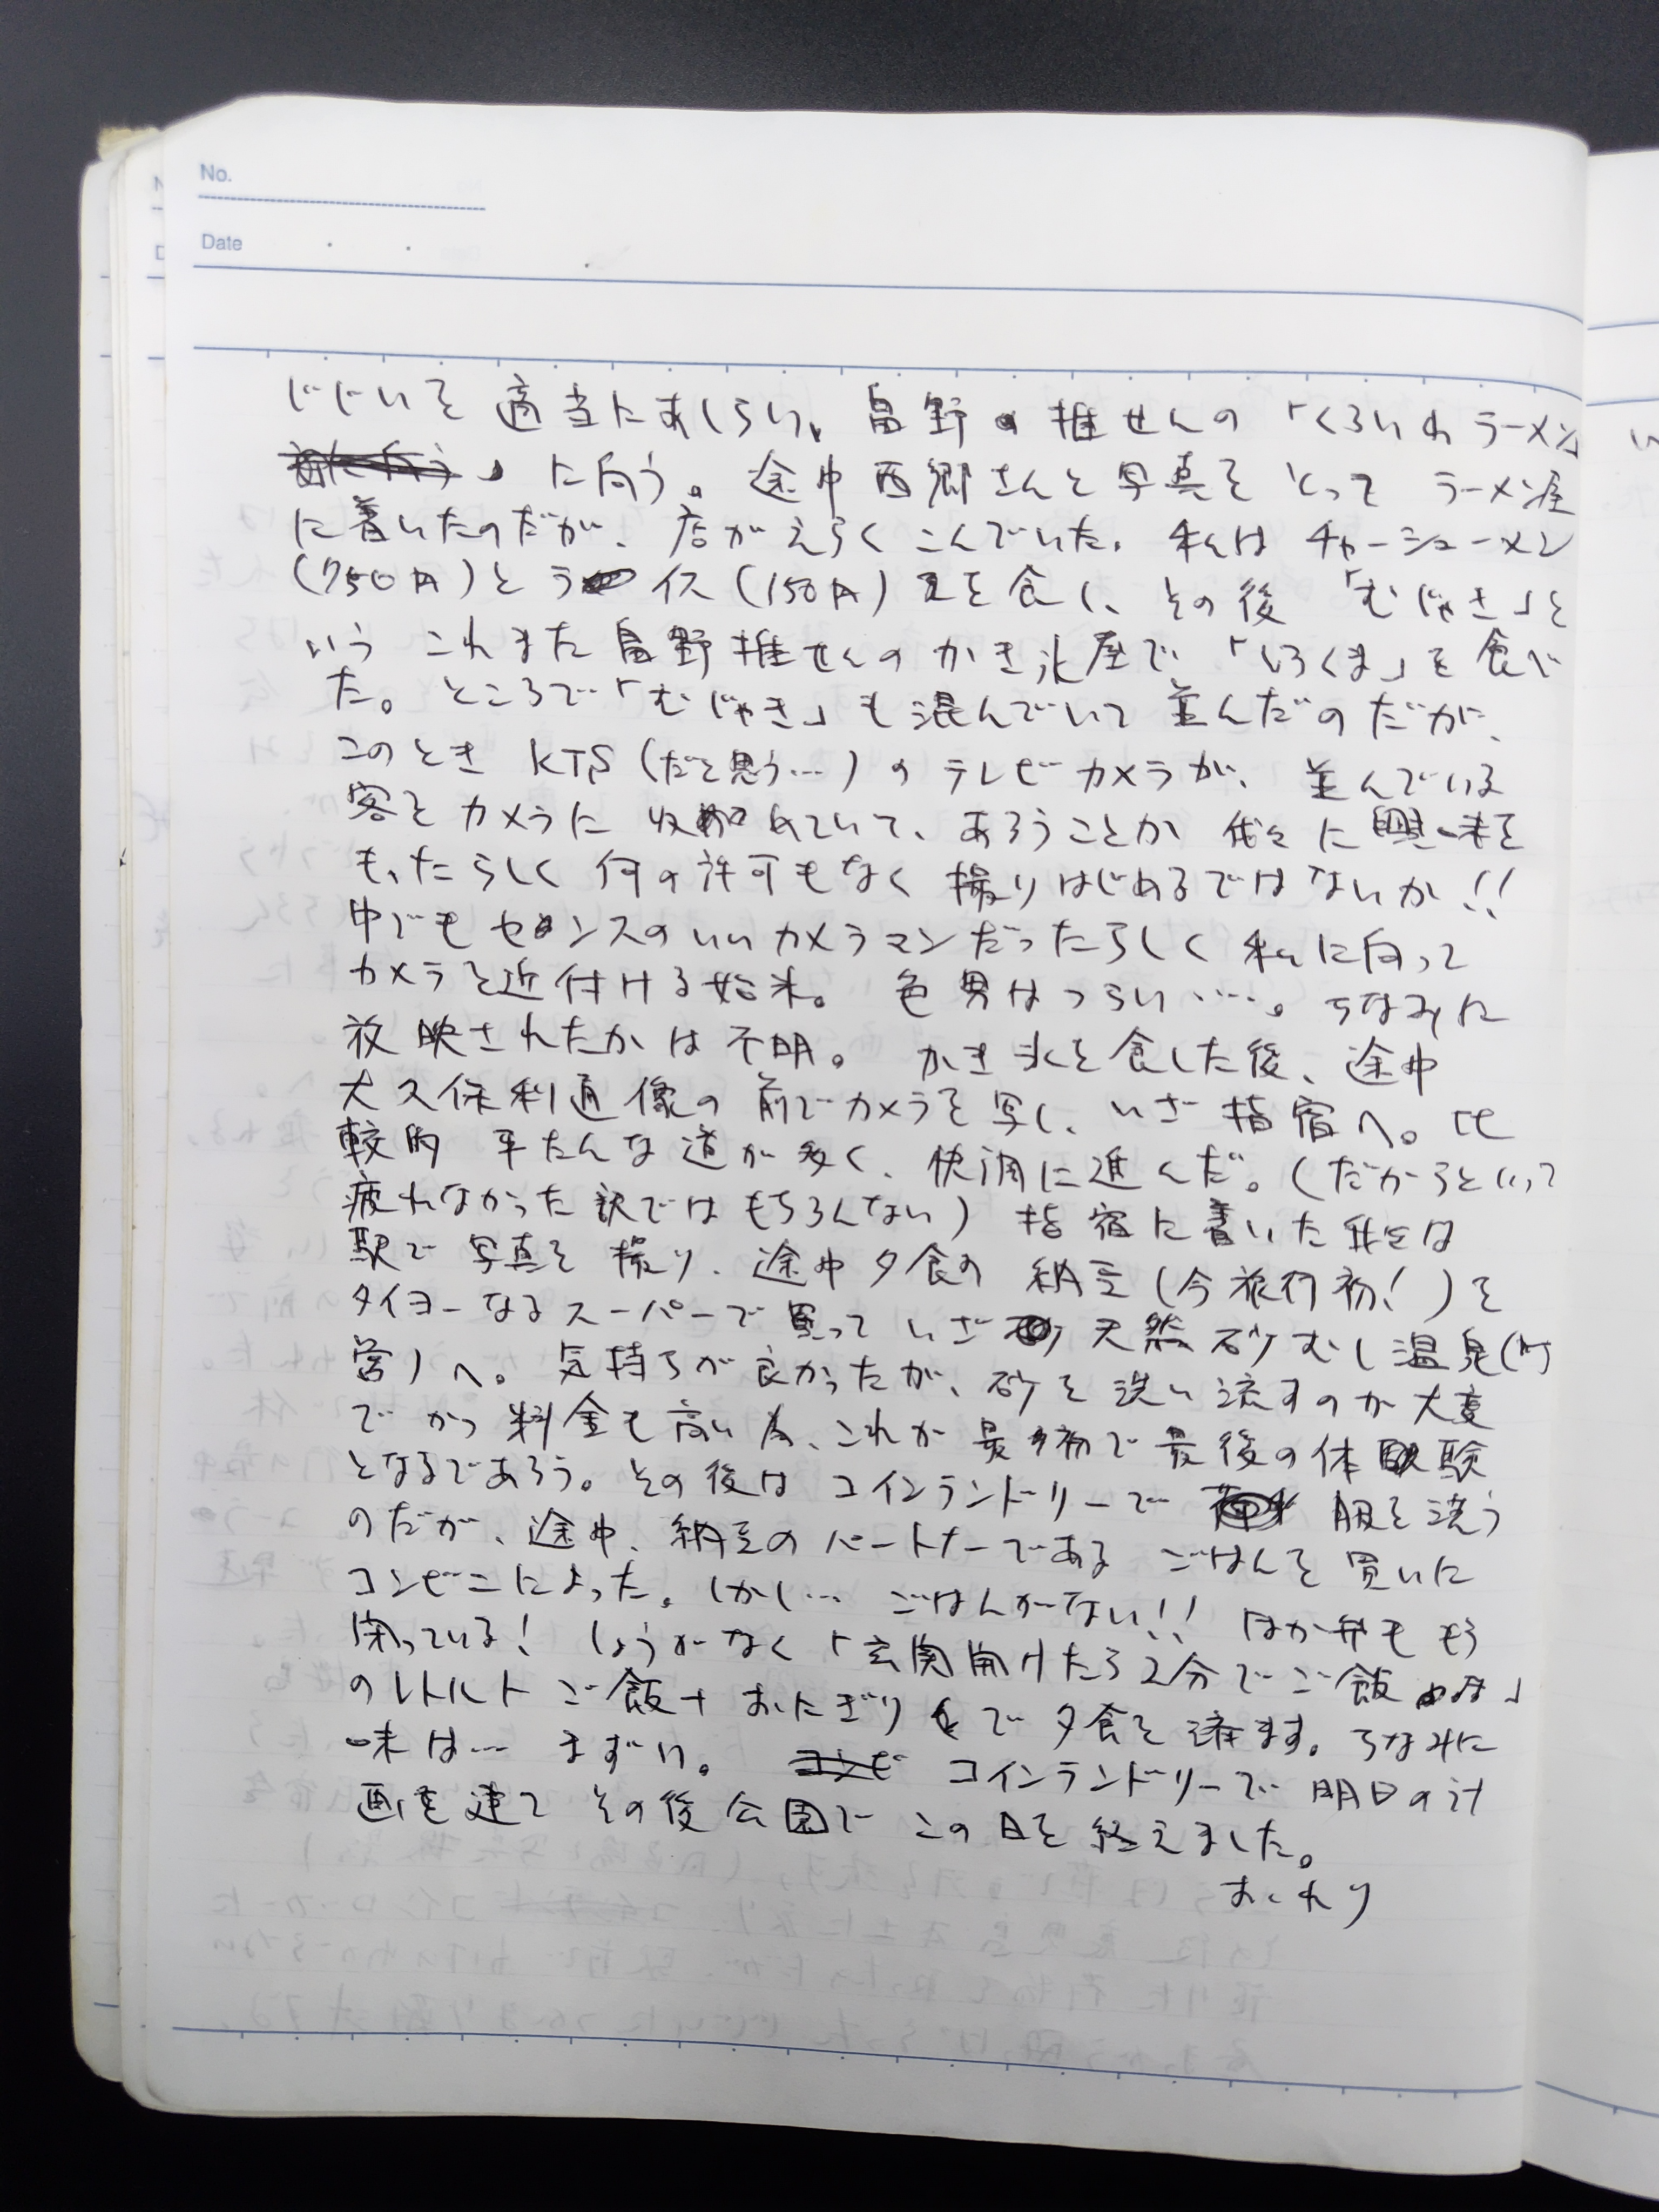 No.
Date
じじいを適当にあしらい、畠野推せんの「くろいわラーメン
」に向う。途中西郷さんと写真をとってラーメン屋
に着いたのだが、店がえらくこんでいた。私はチャーシューメン
(750円)とライス(150円)を食し、その後「むじゃき」と
いうこれまた畠野推せんのかき氷屋で、「しろくま」を食べ
た。ところで「むじゃき」も混んでいて並んだのだが、
このときKTS(だと思う…)のテレビカメラが、並んでいる
客をカメラに収めていて、あろうことか我々に興味を
もったらしく何の許可もなく撮りはじめるではないか!!
中でもセンスのいいカメラマンだったらしく私に向って
カメラを近付ける始末。色男はつらい…。ちなみに
放映されたかは不明。かき氷を食した後、途中
大久保利通像の前でカメラを写し、いざ指宿へ。比
較的平たんな道が多く、快調に進んだ。(だからといって
疲れなかった訳ではもちろんない)指宿に着いた我々は
駅で写真を撮り、途中夕食の納豆(今旅行初!)を
タイヨーなるスーパーで買っていざ天然砂むし温泉(町
営)へ。気持ちが良かったが、砂を洗い流すのが大変
でかつ料金も高い為、これが最初で最後の体験
となるであろう。その後はコインランドリーで服を洗う
のだが、途中、納豆のパートナーであるごはんを買いに
コンビニによった。しかし…ごはんがない!!ほか弁ももう
閉っている!しょうがなく「玄関開けたら2分でご飯」
のレトルトご飯+おにぎりで夕食を済ます。ちなみに
味は…まずい。コインランドリーで明日の計
画を建てその後公園でこの日を終えました。
おわり